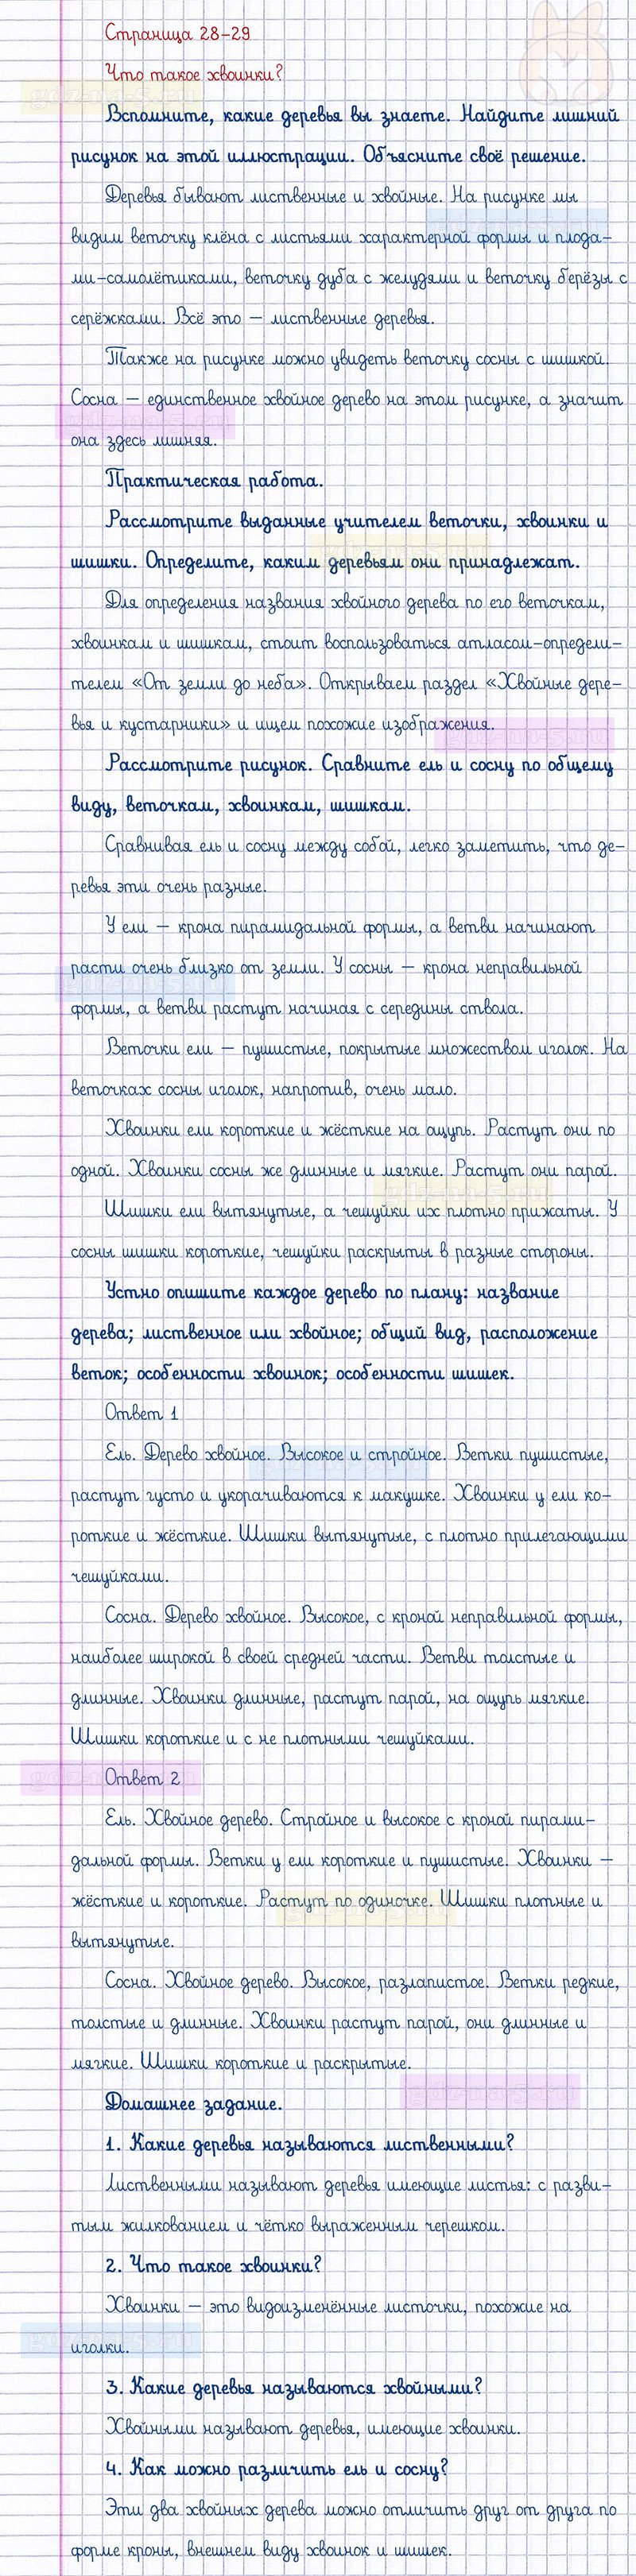 Страница 28-29
Что такое хвоинки?
Вспомните, какие деревья вы знаете. Найдите лишний
рисунок на этой иллюстрации. Объясните своё решение.
Деревья бывают лиственные и хвойные. На рисунке мы
видим веточку клёна с листьями характерной формы и плода-
ми-самолётиками, веточку дуба с желудями и веточку берёзы с
серёжками. Всё это – лиственные деревья.
Также на рисунке можно увидеть веточку сосны с шишкой.
Сосна – единственное хвойное дерево на этом рисунке, а значит
она здесь лишняя.
Практическая работа.
Рассмотрите выданные учителем веточки, хвоинки и
шишки. Определите, каким деревьям они принадлежат.
Для определения названия хвойного дерева по его веточкам,
хвоинкам и шишкам, стоит воспользоваться атласом-определи-
телем «От земли до неба». Открываем раздел «Хвойные дере-
вья и кустарники» и ищем похожие изображения.
Рассмотрите рисунок. Сравните ель и сосну по общему
виду, веточкам, хвоинкам, шишкам.
Сравнивая ель и сосну между собой, легко заметить, что де-
ревья эти очень разные.
У ели – крона пирамидальной формы, а ветви начинают
расти очень близко от земли. У сосны – крона неправильной
формы, а ветви растут начиная с середины ствола.
Веточки ели – пушистые, покрытые множеством иголок. На
веточках сосны иголок, напротив, очень мало.
Хвоинки ели короткие и жёсткие на ощупь. Растут они по
одной. Хвоинки сосны же длинные и мягкие. Растут они парой.
Шишки ели вытянутые, а чешуйки их плотно прижаты. У
сосны шишки короткие, чешуйки раскрыты в разные стороны.
Устно опишите каждое дерево по плану: название
дерева; лиственное или хвойное; общий вид, расположение
веток; особенности хвоинок; особенности шишек.
Ответ 1
Ель. Дерево хвойное. Высокое и стройное. Ветки пушистые,
растут густо и укорачиваются к макушке. Хвоинки у ели ко-
роткие и жёсткие. Шишки вытянутые, с плотно прилегающими
чешуйками.
Сосна. Дерево хвойное. Высокое, с кроной неправильной формы,
наиболее широкой в своей средней части. Ветви толстые и
длинные. Хвоинки длинные, растут парой, на ощупь мягкие.
Шишки короткие и с не плотными чешуйками.
Ответ 2
Ель. Хвойное дерево. Стройное и высокое с кроной пирами-
дальной формы. Ветки у ели короткие и пушистые. Хвоинки –
жёсткие и короткие. Растут по одиночке. Шишки плотные и
вытянутые.
Сосна. Хвойное дерево. Высокое, разлапистое. Ветки редкие,
толстые и длинные. Хвоинки растут парой, они длинные и
мягкие. Шишки короткие и раскрытые.
Домашнее задание.
1. Какие деревья называются лиственными?
Лиственными называют деревья имеющие листья: с разви-
тым жилкованием и чётко выраженным черешком.
2. Что такое хвоинки?
Хвоинки – это видоизменённые листочки, похожие на
иголки.
3. Какие деревья называются хвойными?
Хвойными называют деревья, имеющие хвоинки.
4. Как можно различить ель и сосну?
Эти два хвойных дерева можно отличить друг от друга по
форме кроны, внешнем виду хвоинок и шишек.